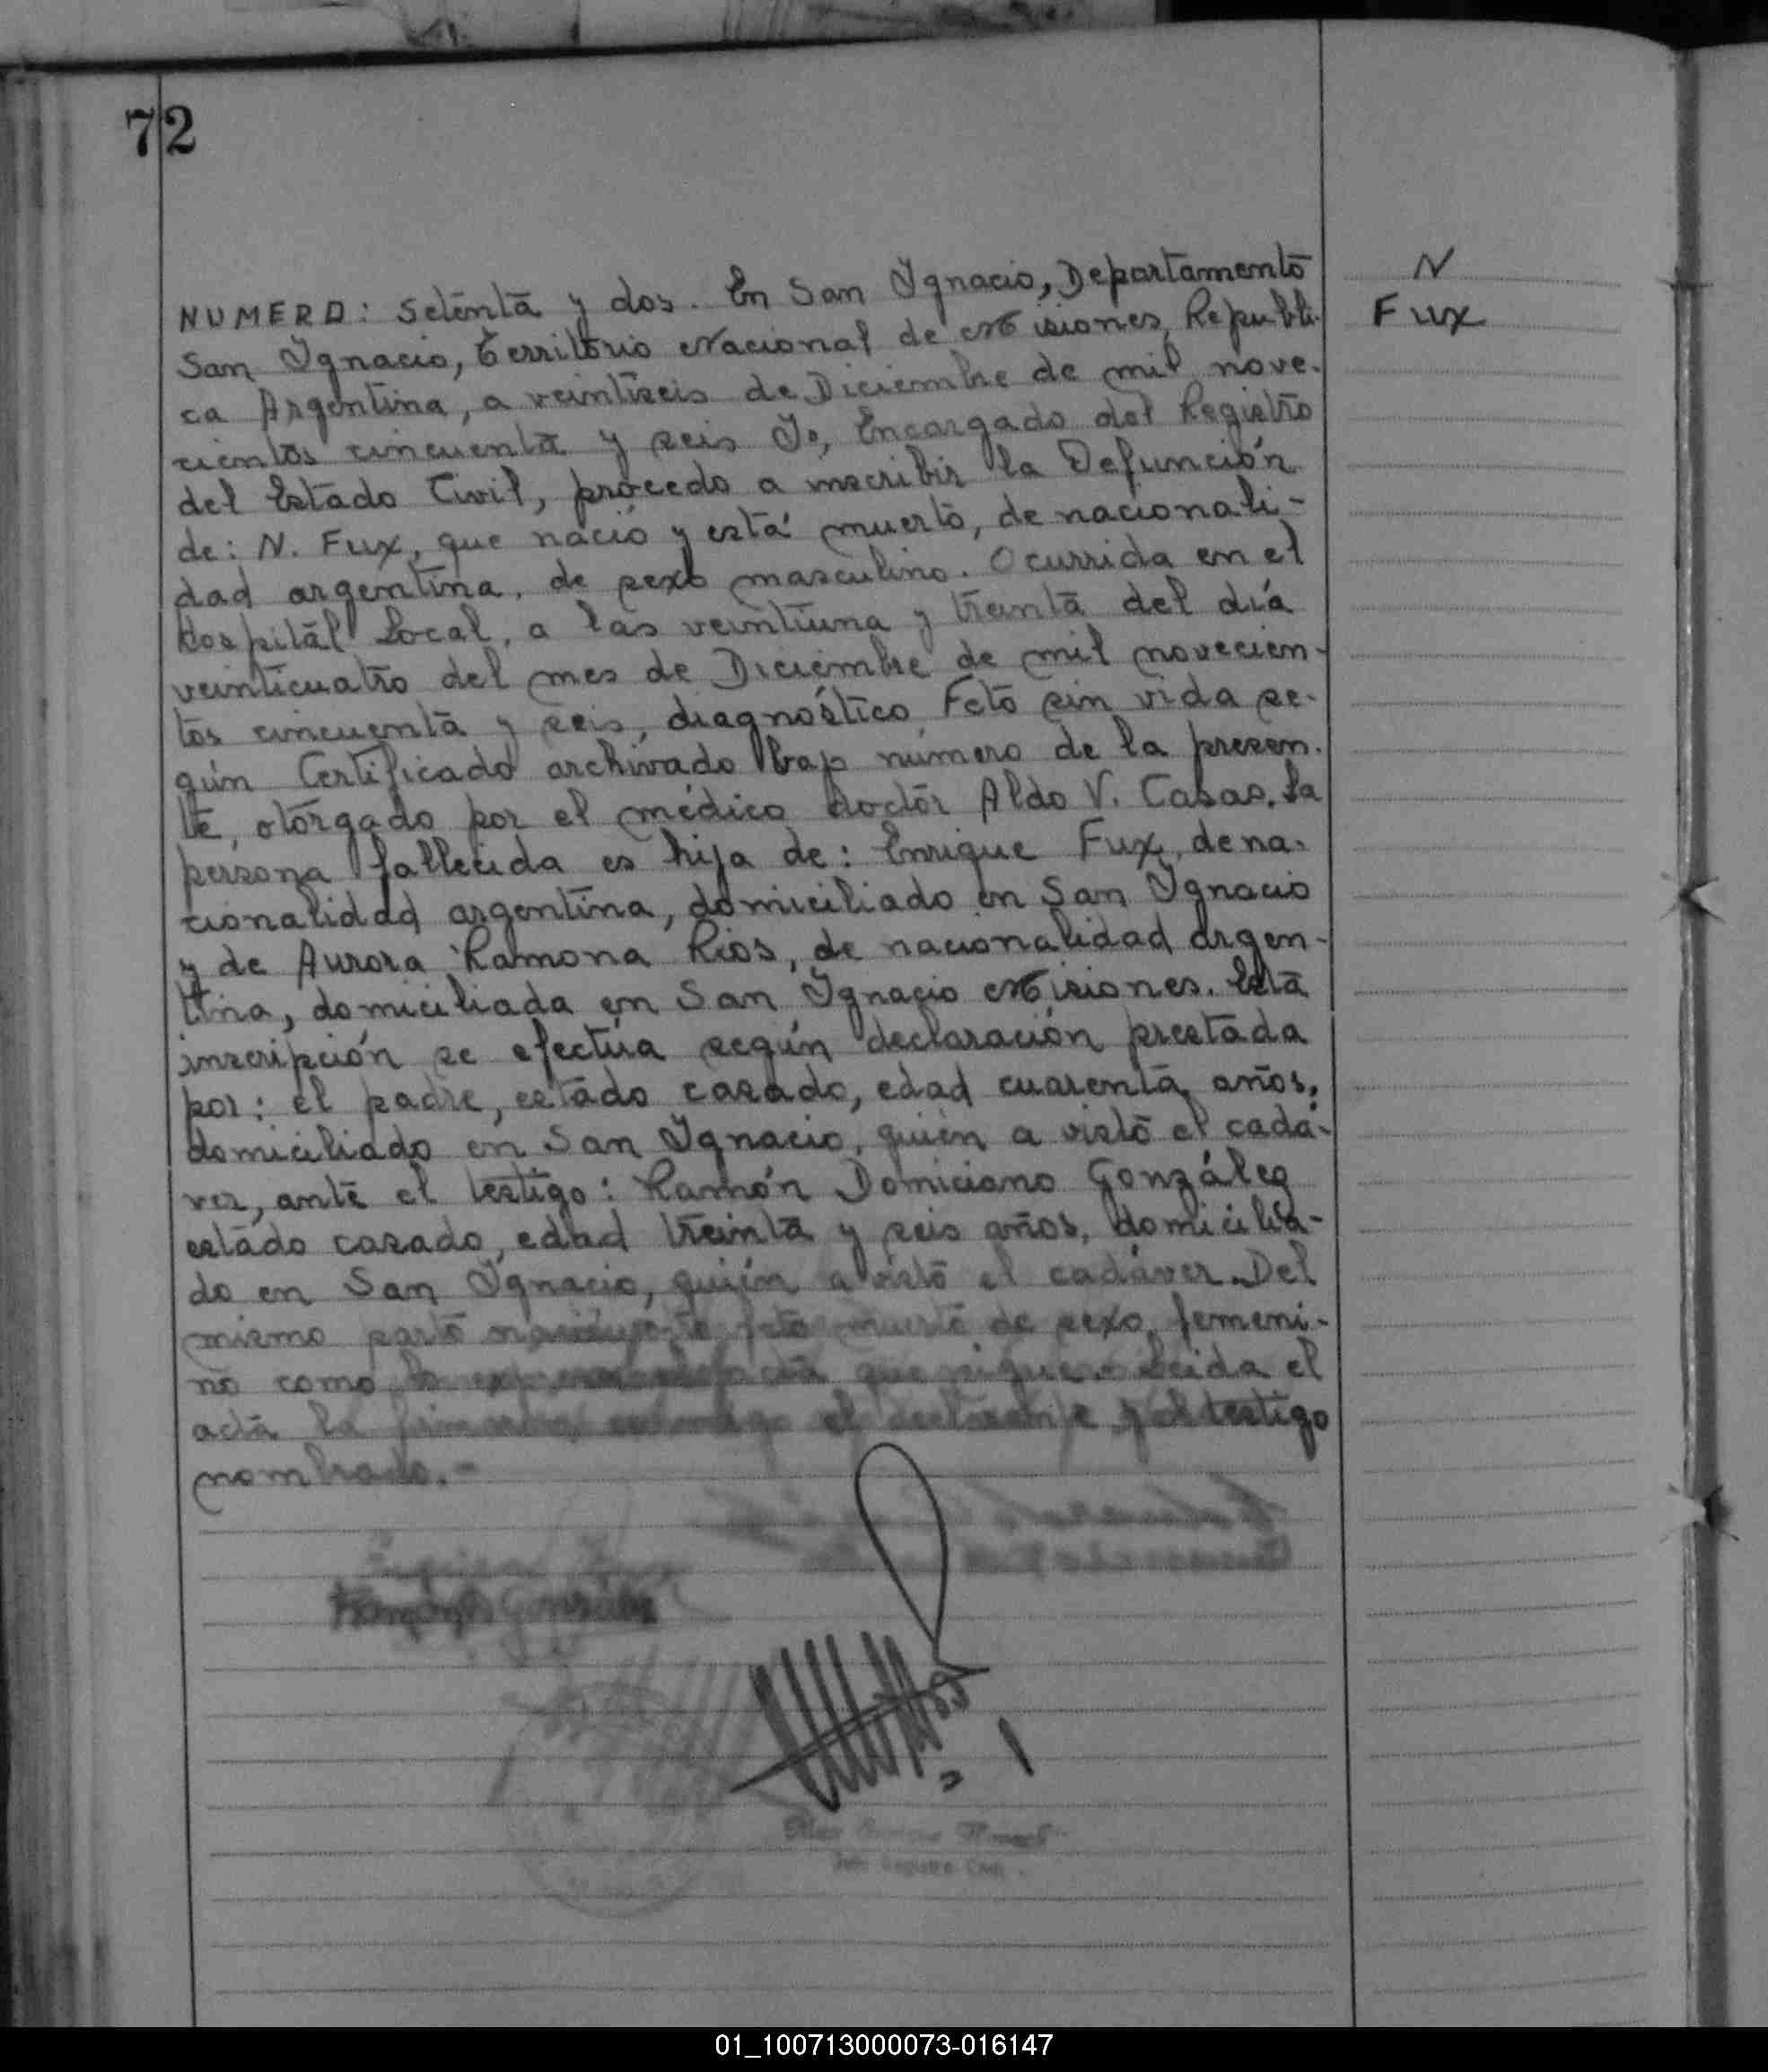 72
N
Fux
NUMERO: Setenta y dos. En San Ygnacio, Departamento
San Ygnacio, Territorio Nacional de Misiones, Republi-
ca Argentina, a veintiseis de Diciembre de mil nove-
cientos cincuenta y seis Yo, Encargado del Registro
del Estado Civil, procedo a inscribir la Defunción
de: N. Fux, que nació y está muerto, de nacionali-
dad argentina, de sexo masculino. Ocurrida en el
Hospital Local, a las veintiuna y treinta del día
veinticuatro del mes de Diciembre de mil novecien-
tos cincuenta y seis, diagnóstico Feto sin vida se-
gún Certificado archivado bajo número de la presen-
te, otorgado por el médico doctor Aldo V. Casas. La
persona fallecida es hija de: Enrique Fux, de na-
cionalidad argentina, domiciliado en San Ygnacio
y de Aurora Ramona Rios, de nacionalidad argen-
tina, domiciliada en San Ygnacio Misiones. Esta
inscripción se efectúa según declaración prestada
por: el padre, estado casado, edad cuarenta años,
domiciliado en San Ygnacio, quién a visto el cadá-
ver, ante el testigo: Ramón Domiciano González
estado casado, edad treinta y seis años, domicilia-
do en San Ygnacio, quién a visto el cadáver. Del
mismo parto feto muerto de sexo femeni-
no como que sigue. Leida el
acta la conmigo el declarante y el testigo
nombrado.-
Jefe Registro Civil
01_100713000073-016147